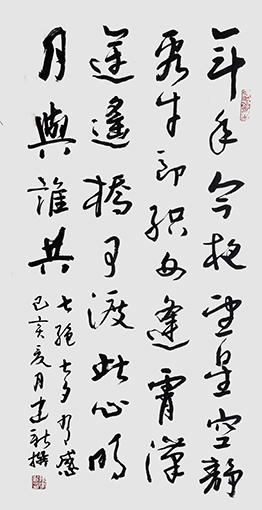 年年今夜望星空静
看牛郎织女逢霄汉
迢遥橋可渡此心明
月與誰共
七絕七夕有感
己亥夏月建新撰